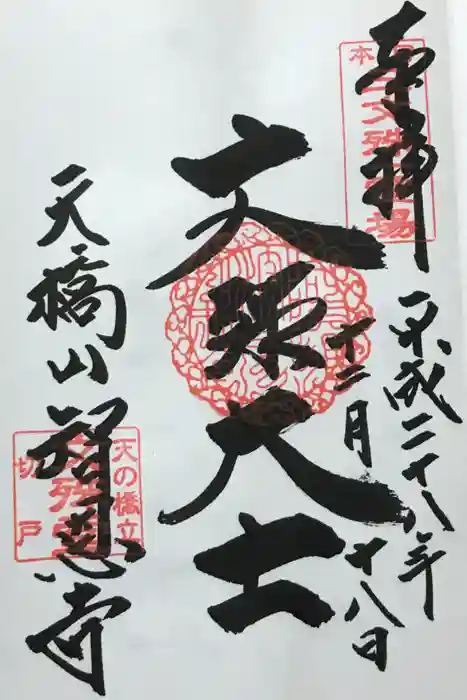 奉拝
平成二十八年
十二月十八日
文殊大士
天橋山智恩寺
天の橋立
切戸